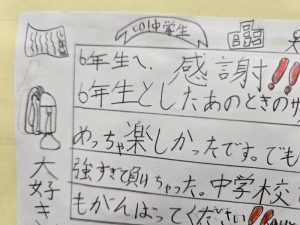 中学生
6年生へ、感謝!!
6年生としたあのときのサ
めっちゃ楽しかったです。でも
強すぎて負けちゃった。中学校
もがんばってください!!
大好き